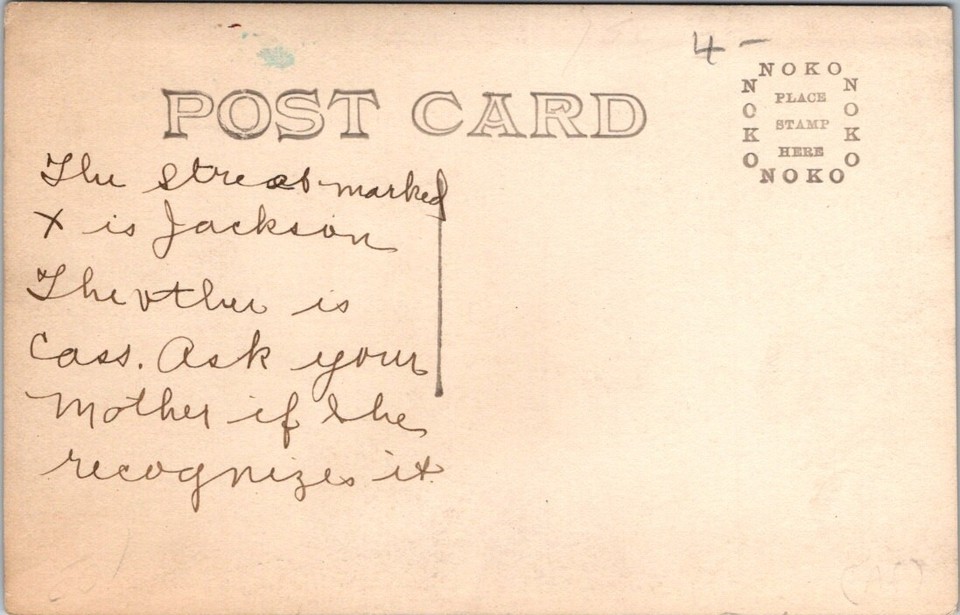 4 –
POST CARD
NOKO
NOKO
NOKO
NOKO
PLACE
STAMP
HERE
The street marked
X is Jackson
The other is
Cass. Ask your
Mother if she
recognizes it